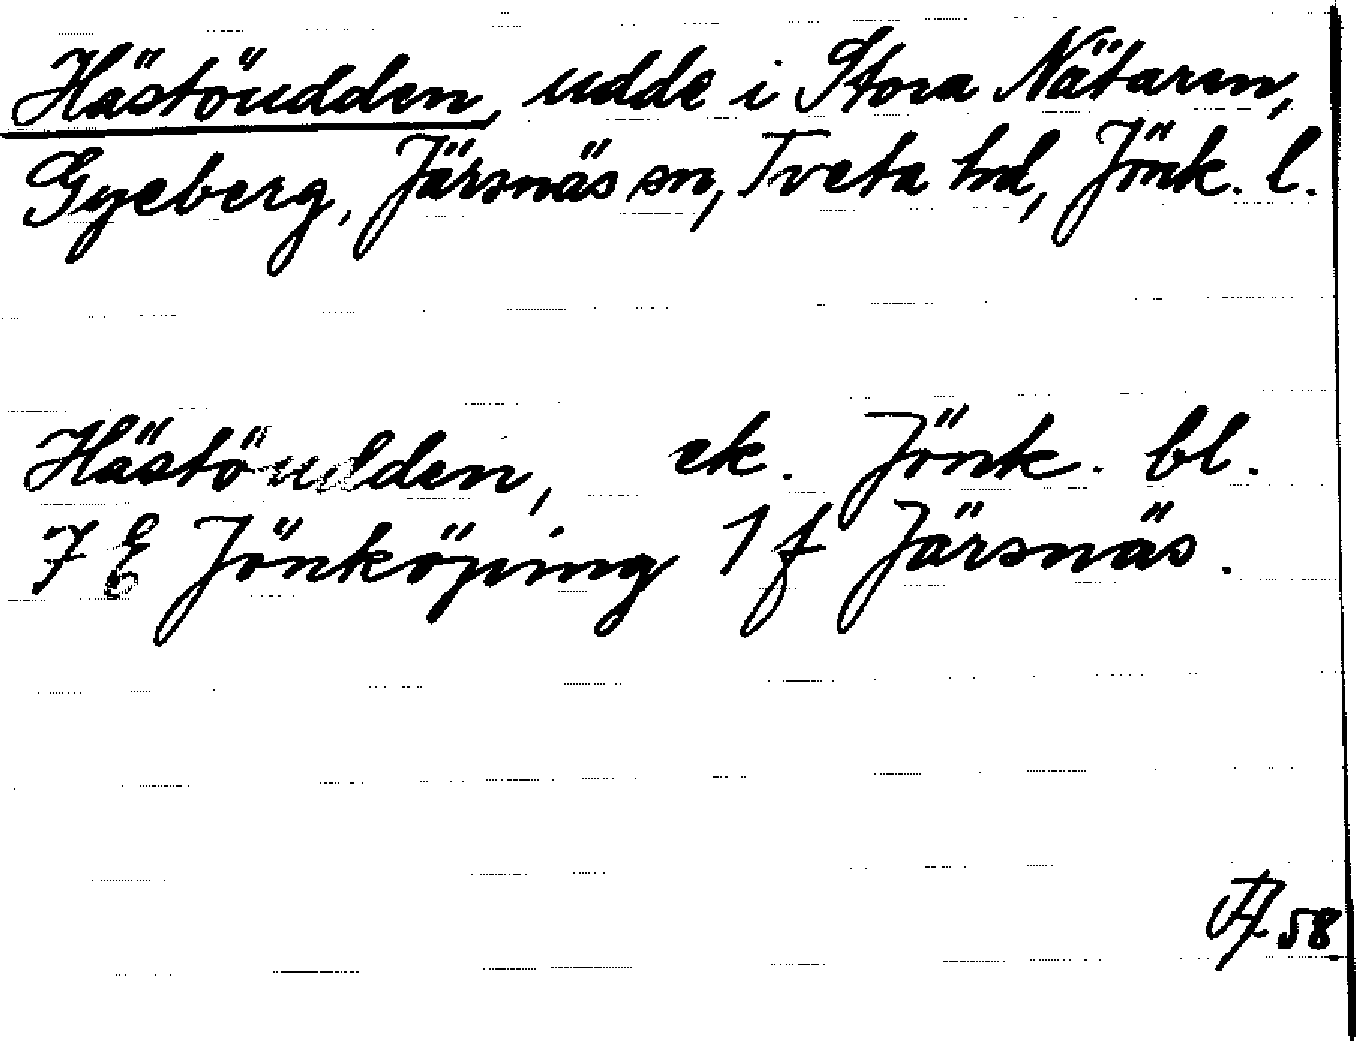 Hästöudden, udde i Stora Nätaren,
Gyeberg, Järsnäs sn, Tveta hd, Jönk. l.
Hästöudden, ek. Jönk. bl.
7 E Jönköping 1 f Järsnäs.
58